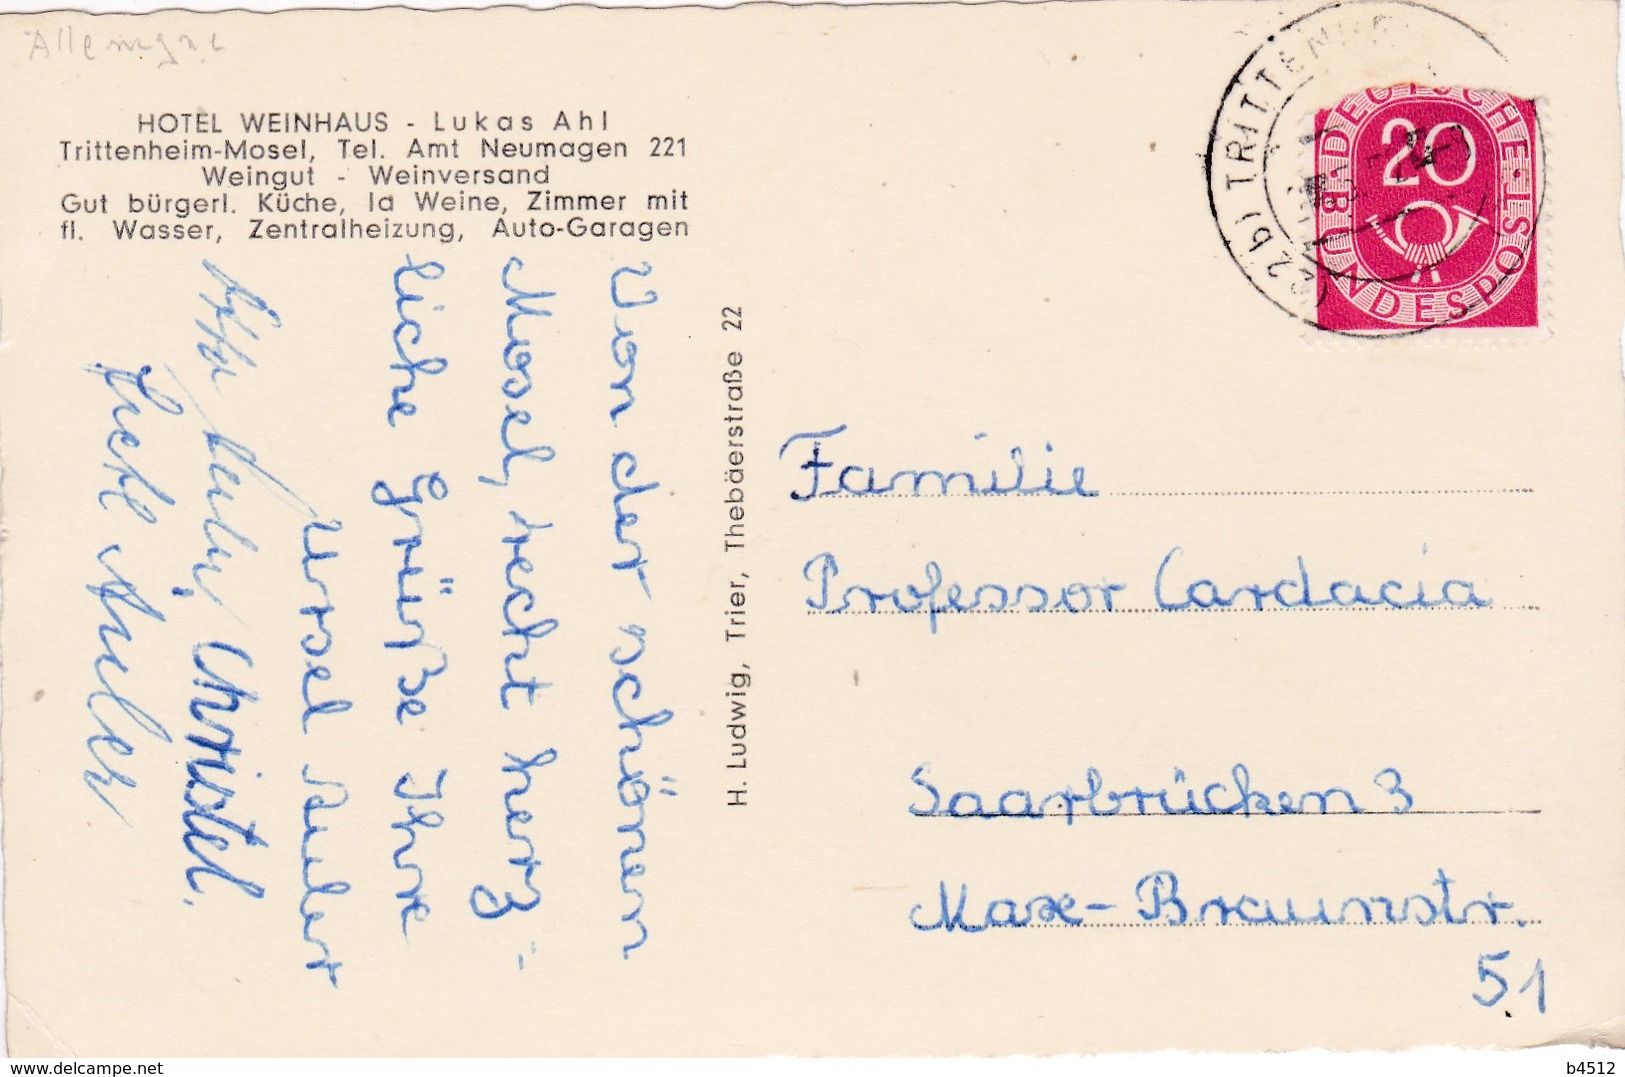 Allemagne
HOTEL WEINHAUS - Lukas Ahl
Trittenheim-Mosel, Tel. Amt Neumagen 221
Weingut - Weinversand
Gut bürgerl. Küche, Ia Weine, Zimmer mit
fl. Wasser, Zentralheizung, Auto-Garagen
Von der schönen
Mosel, recht herz-
liche Grüße Ihre
Ursel Aulert
Christel.
H. Ludwig, Trier, Thebäerstraße 22
(22b) TRITTENH
DEUTSCHE BUNDESPOST
20
Familie
Professor Cardacia
Saarbrücken 3
Max-Braunstr.
51
delcampe.net
b4512